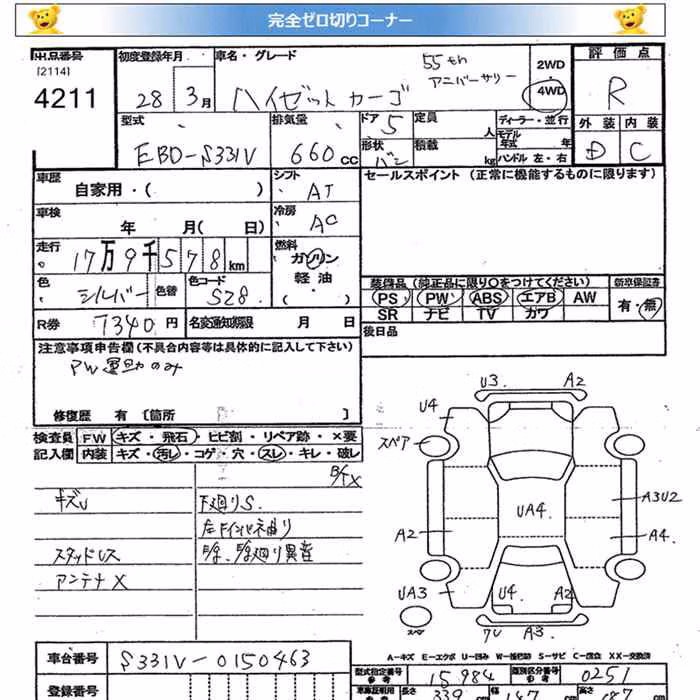 完全ゼロ切りコーナー
出品番号 初度登録年月 車名・グレード 55th アニバーサリー 2WD 評価点
[2114] 4WD
4211 28 3月 ハイゼットカーゴ R
型式 排気量 ドア 5 定員 人 ディーラー・並行 外装 内装
EBD-S331V 660cc 形状 バン 積載 kg モデル年式 年 D C
ハンドル 左・右
車歴 自家用・( ) シフト AT セールスポイント (正常に機能するものに限ります)
車検 年 月( 日) 冷房 AC
走行 17万9千578km 燃料 ガソリン
軽油
・( )
色 シルバー 色替 色コード S28 装備品 (純正品に限り○をつけてください) 新車保証書
PS PW ABS エアB AW 有・無
SR ナビ TV カワ
R券 7340円 名変通知期限 月 日 後日品
注意事項申告欄 (不具合内容等は具体的に記入して下さい)
PW運助のみ
修復歴 有 〔箇所 〕
検査員 FW キズ・飛石・ヒビ割・リペア跡・×要
記入欄 内装 キズ・汚レ・コゲ・穴・スレ・キレ・破レ
キズU 下廻りS.
スタッドレス
アンテナX
U3. A2
U4
スペア
UA4.
A3U2
A2 A4.
UA3 U4 A2
スペア 7U A3.
A-キズ E-エクボ U-凹み W-補修跡 S-サビ C-腐食 XX-交換済
車台番号 S331V-0150463
登録番号
型式指定番号 参考 15984 類別区分番号 参考 0251
長さ 339 幅 147 高さ 187